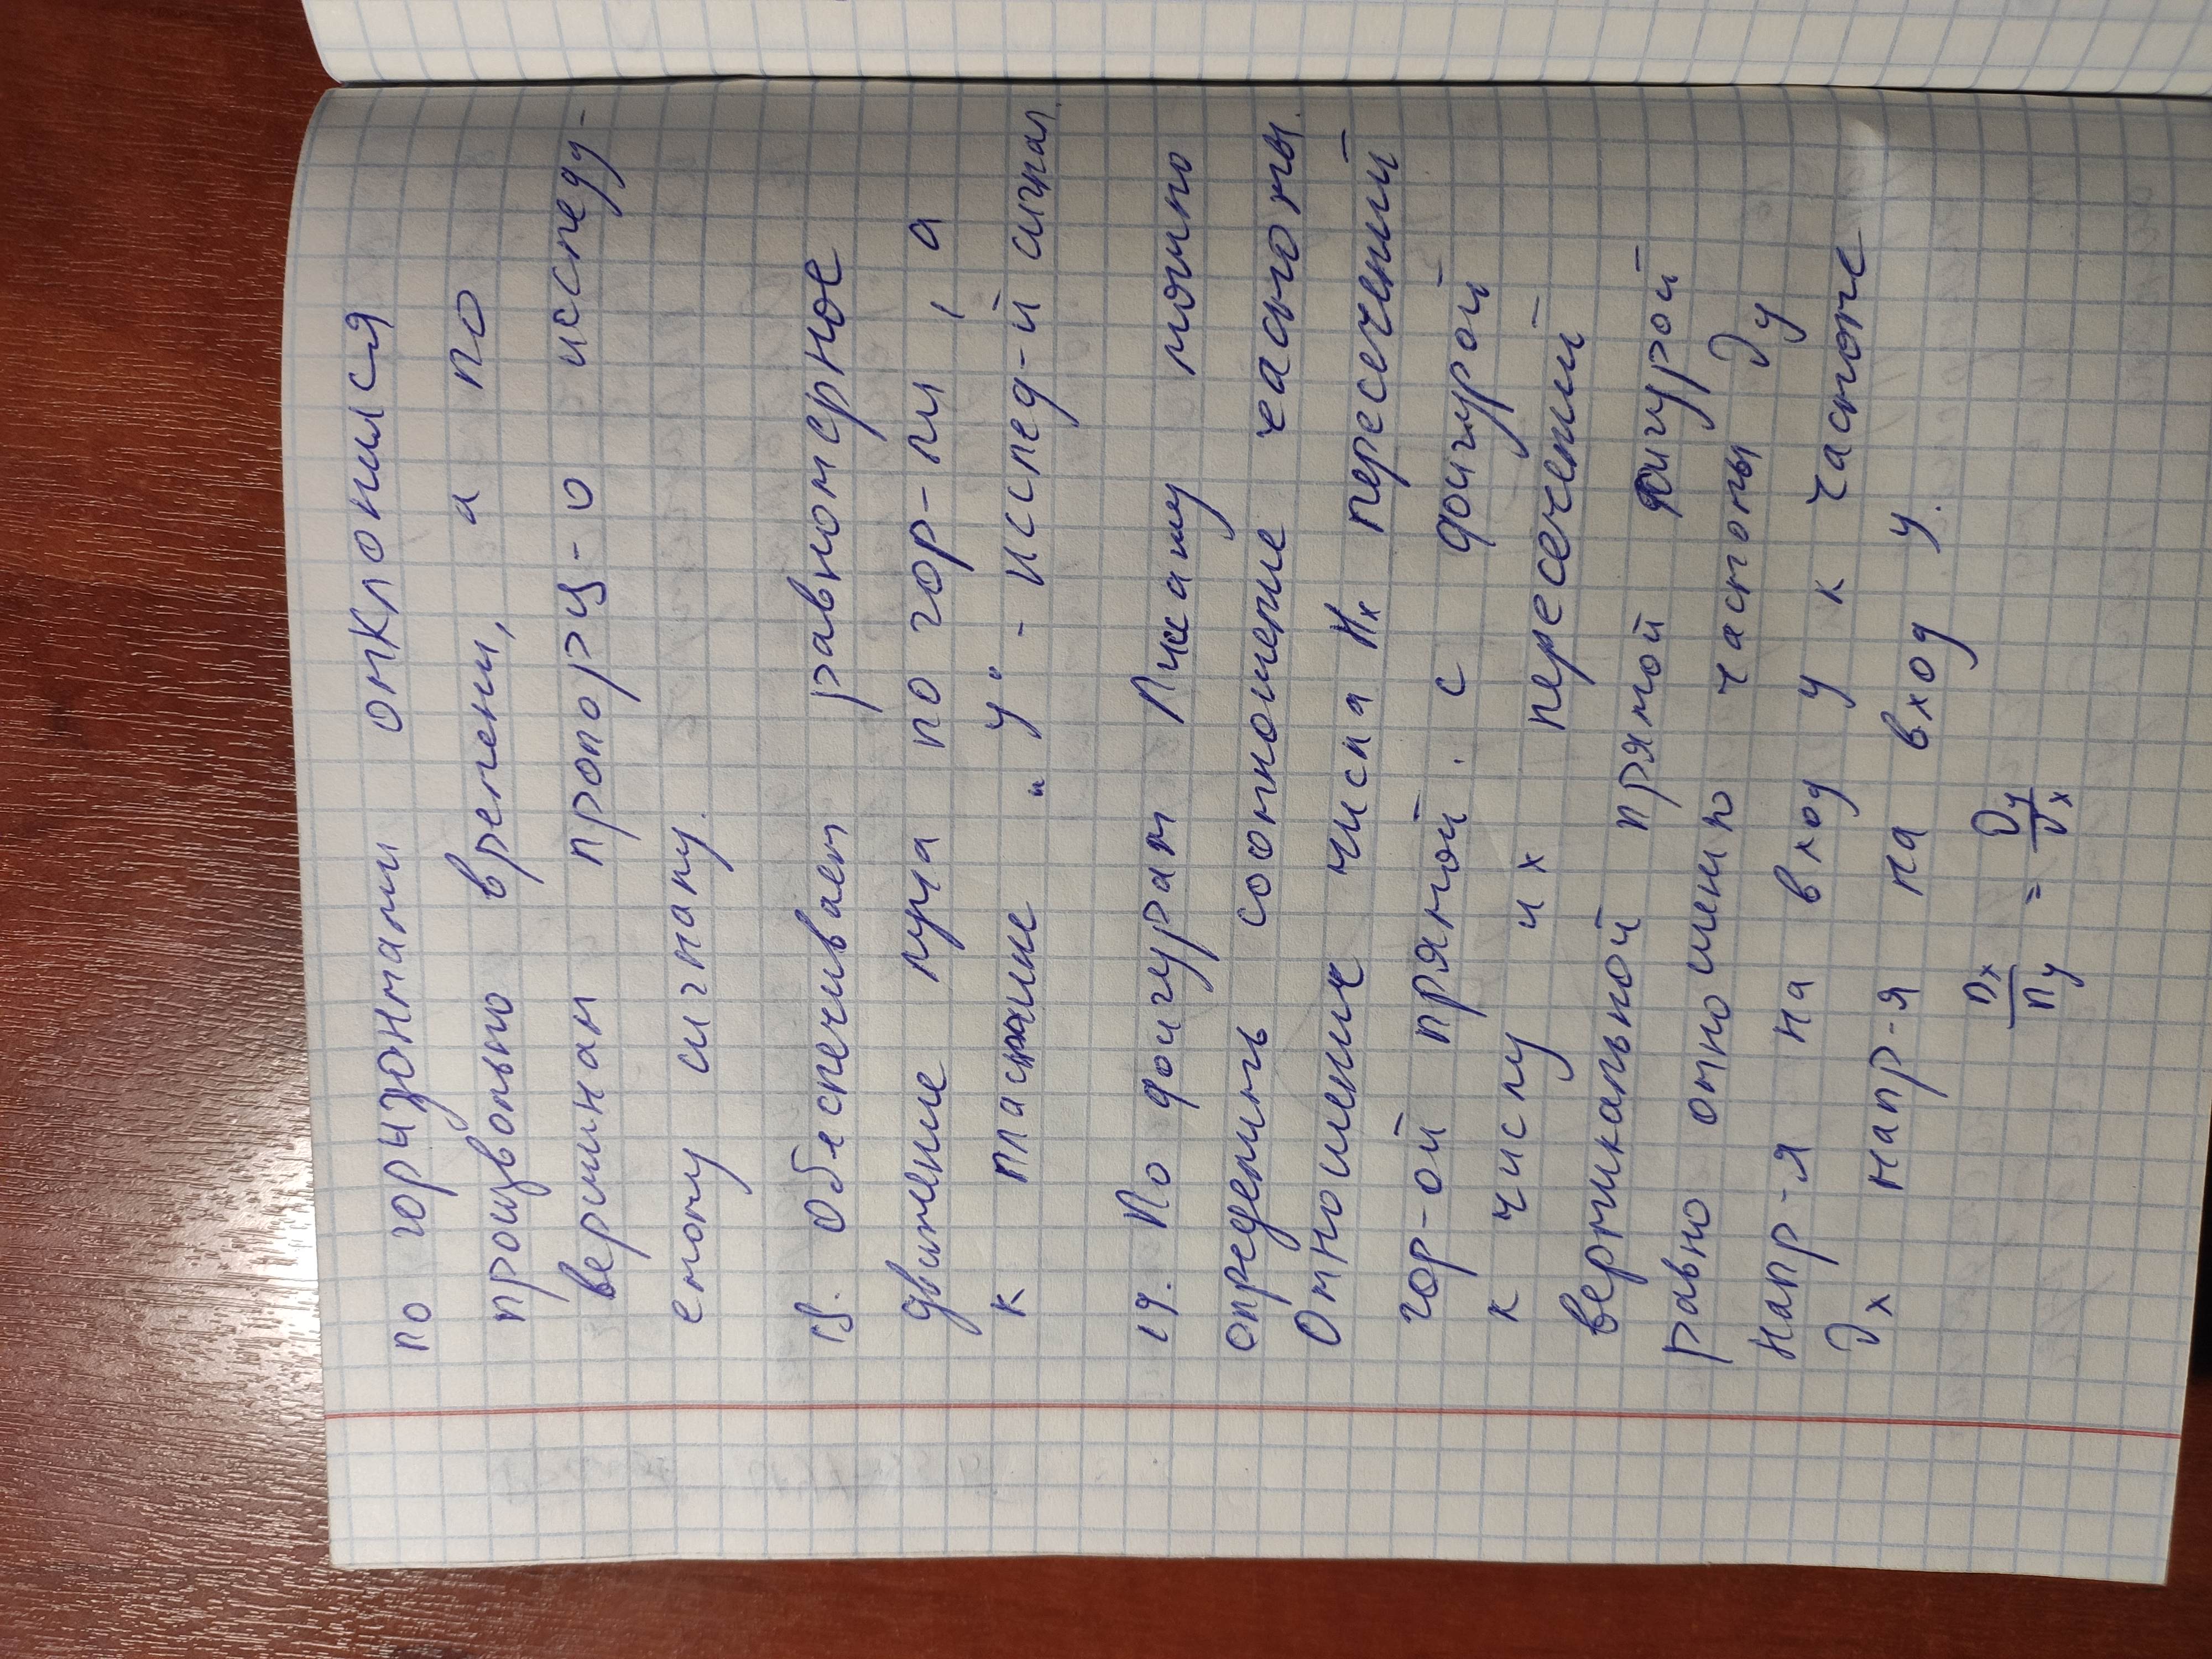 по горызонтали отклонился
произвольно времени, а по
вершинам пропорц-о исследу-
емому сигналу.
18. Обеспечивает равномерное
движение луча по гор-ли, а
к пластине „У“ - исслед-й сигнал.
19. По фигурам Лиссажу можно
определить соотношение частоты.
Отношение числа Нх пересечений
гор-ой прямой с фигурой
к числу их пересечений
вертикальной прямой фигурой
равно отношению частоты ϑу
напр-я на вход у к частоте
ϑх напр-я на вход У.
nx/ny = ϑy/ϑx